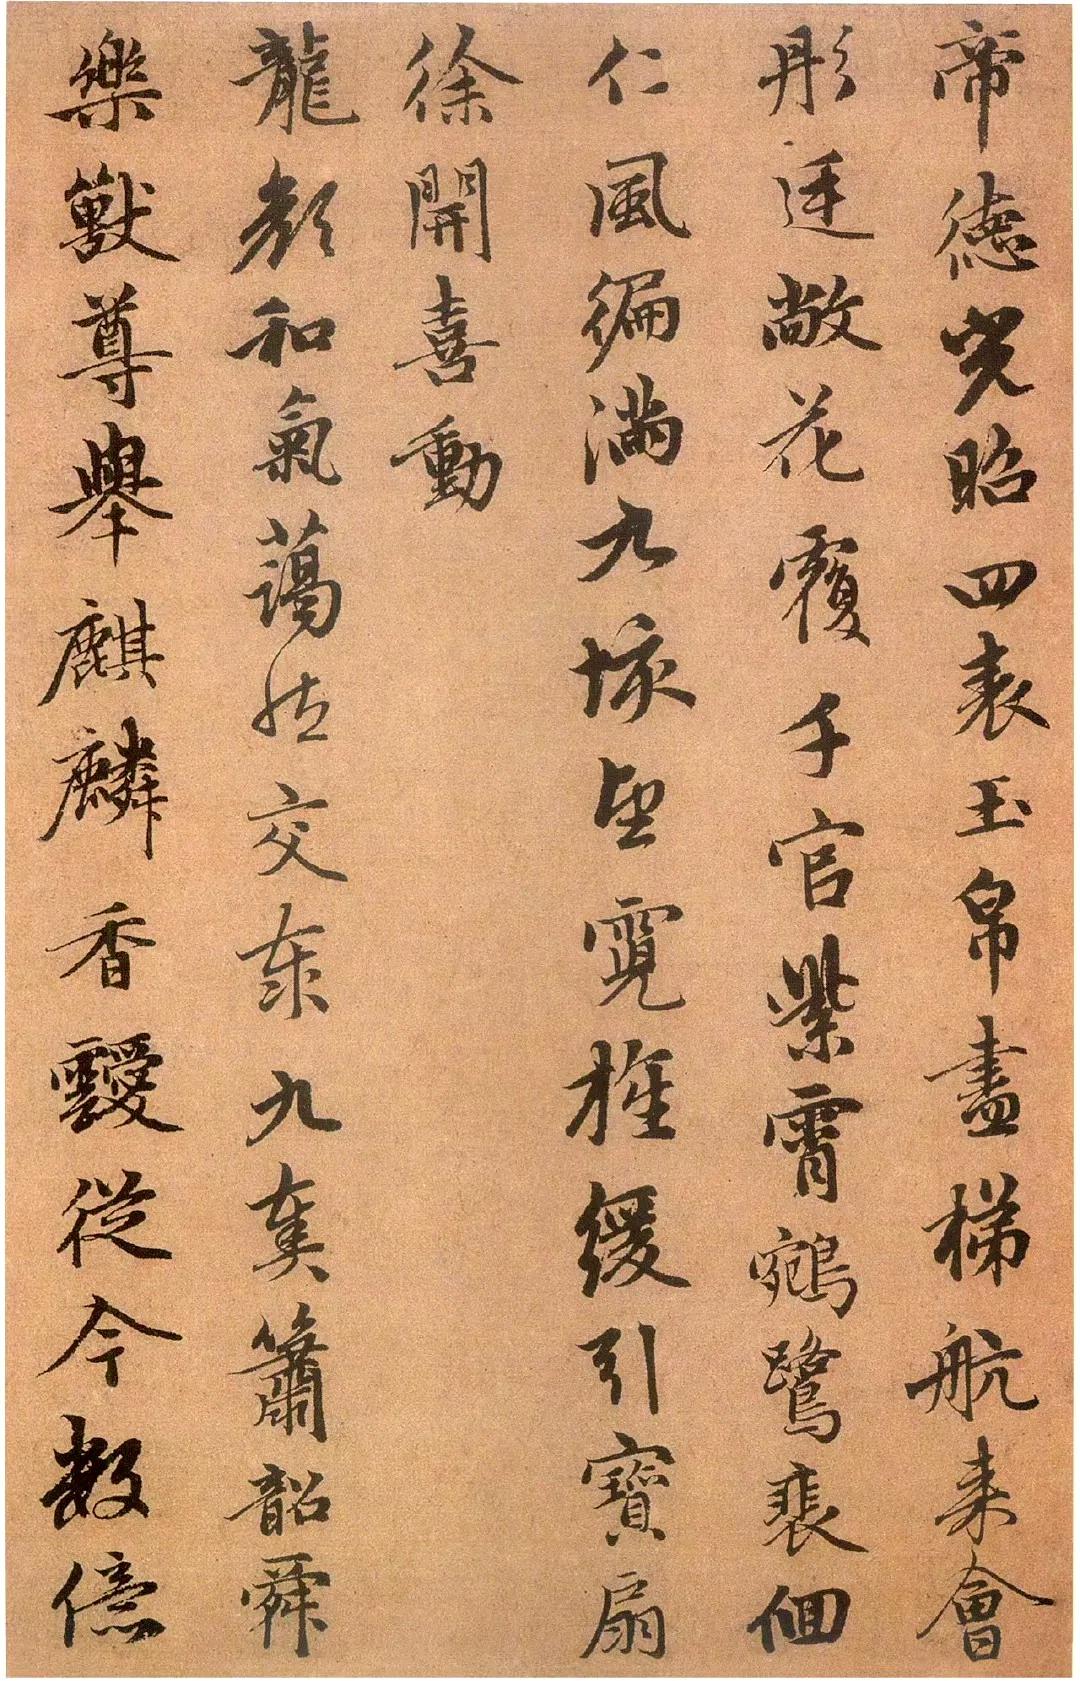 帝德光昭四表玉帛盡梯航来會
彤廷敞花覆千官紫霄鵷鷺裴佪
仁風徧滿九垓望霓旌緩引寶扇
徐開喜動
龍顔和氣藹然交泰九奏簫韶舜
樂獸尊舉麒麟香靉從今数億